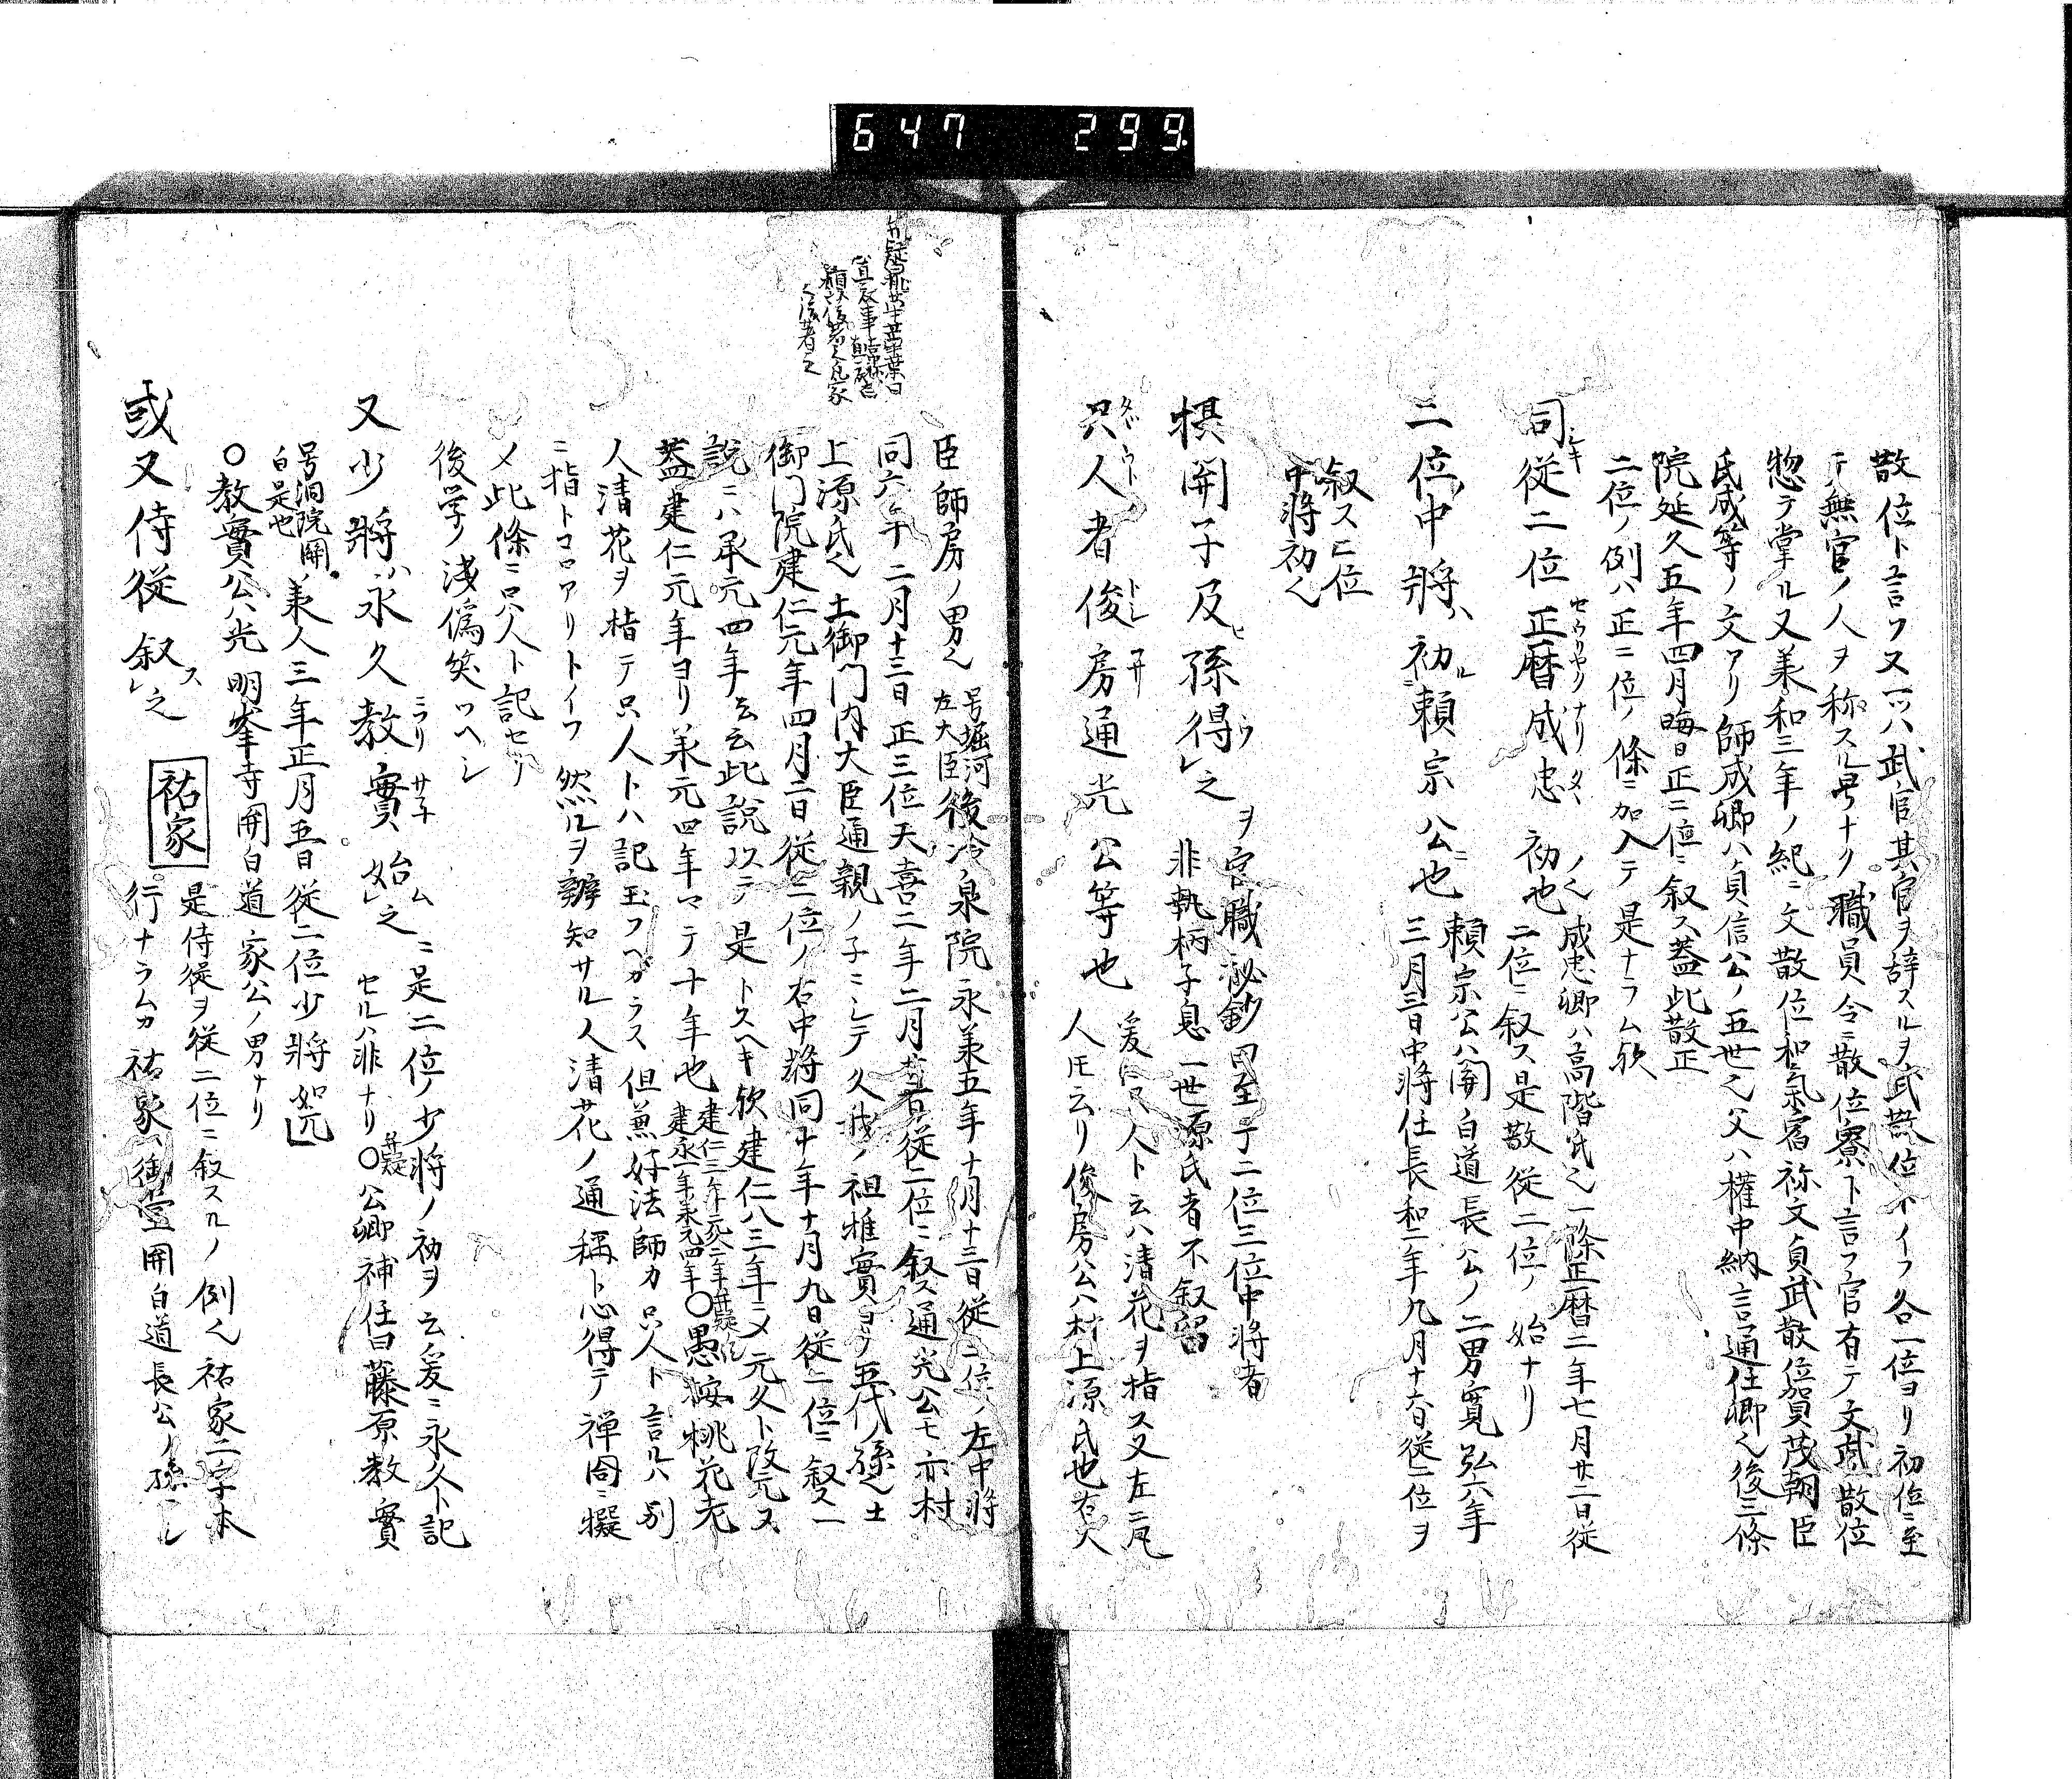 647 299.
散位ト言フ又一ツハ武官其官ヲ辞スルヲ武散位トイフ合一位ヨリ初位ニ至
テ無官ノ人ヲ称スル号ナリ職員令ニ散位寮ト言フ官有テ文武散位
惣テ掌ル又義和三年ノ紀ニ文散位和氣宿祢文貞武散位賀茂朝臣
氏成等ノ文アリ師成卿ハ貞信公ノ五世之父ハ權中納言通任卿之後三條
院延久五年四月晦日正二位ニ叙ス蓋此散正
二位ノ例ハ正二位ノ條ニ加入テ是ナラム欤
司従二位正暦成忠初也
成忠卿ハ高階氏之一條正暦二年七月廿二日従
二位ニ叙ス是散従二位ノ始ナリ
二位中将ハ初頼宗公也
頼宗公ハ関白道長公ノ二男寛弘六年
三月三日中将任長和二年九月十六日従二位ヲ
叙ス二位
中将初之
棋関子及孫得之
ヲ官職秘鈔曰至于二位三位中将者
非執柄子息一世源氏者不叙留
只人者俊房通光公等也
爰ニ只人ト云ハ清花ヲ指ス又左ニ凡
人圧云リ俊房公ハ村上源氏也右大
臣師房ノ男之
号堀河
左大臣
後冷泉院永美五年十月十三日従二位ノ左中将
同六年二月十三日正三位天喜二年二月従二位ニ叙ス通光公モ亦村
上源氏之土御門内大臣通親ノ子ニシテ久我ノ祖雅實ヨリ五代ノ孫之土
御門院建仁元年四月二日従三位ノ右中将同十年十月九日従二位ニ叙ス一
説ニハ承元四年云云此説以テ是トスヘキ欤建仁八三年ニメ元久ト改元ス
蓋建仁元年ヨリ美元四年マテ十年也
建仁三年元久二年
建永一年美元四年
〇愚按桃花老
人清花ヲ指テ只人トハ記玉フヘガラス但兼好法師カ只人ト言ルハ別
ニ指トコロアリトイフ然ルヲ辨知サル人清花ノ通稱ト心得テ禅閤ニ擬
メ此條ニ只人ト記セリ
後学ノ浅偽笑ツヘシ
又少将ハ永久教實始之
ニ是二位ノ少将ノ初ヲ云爰ニ永久ト記
セルハ非ナリ
〇公卿補任曰藤原教實
号洞院関
白是也
美人三年正月五日従二位少将如元
〇教實公ハ光明峯寺関白道家公ノ男ナリ
或又侍従叙之
祐家
是侍従ヲ従二位ニ叙スルノ例之祐家二字本
行ナラムカ祐家ハ御堂関白道長公ノ孫ニシ